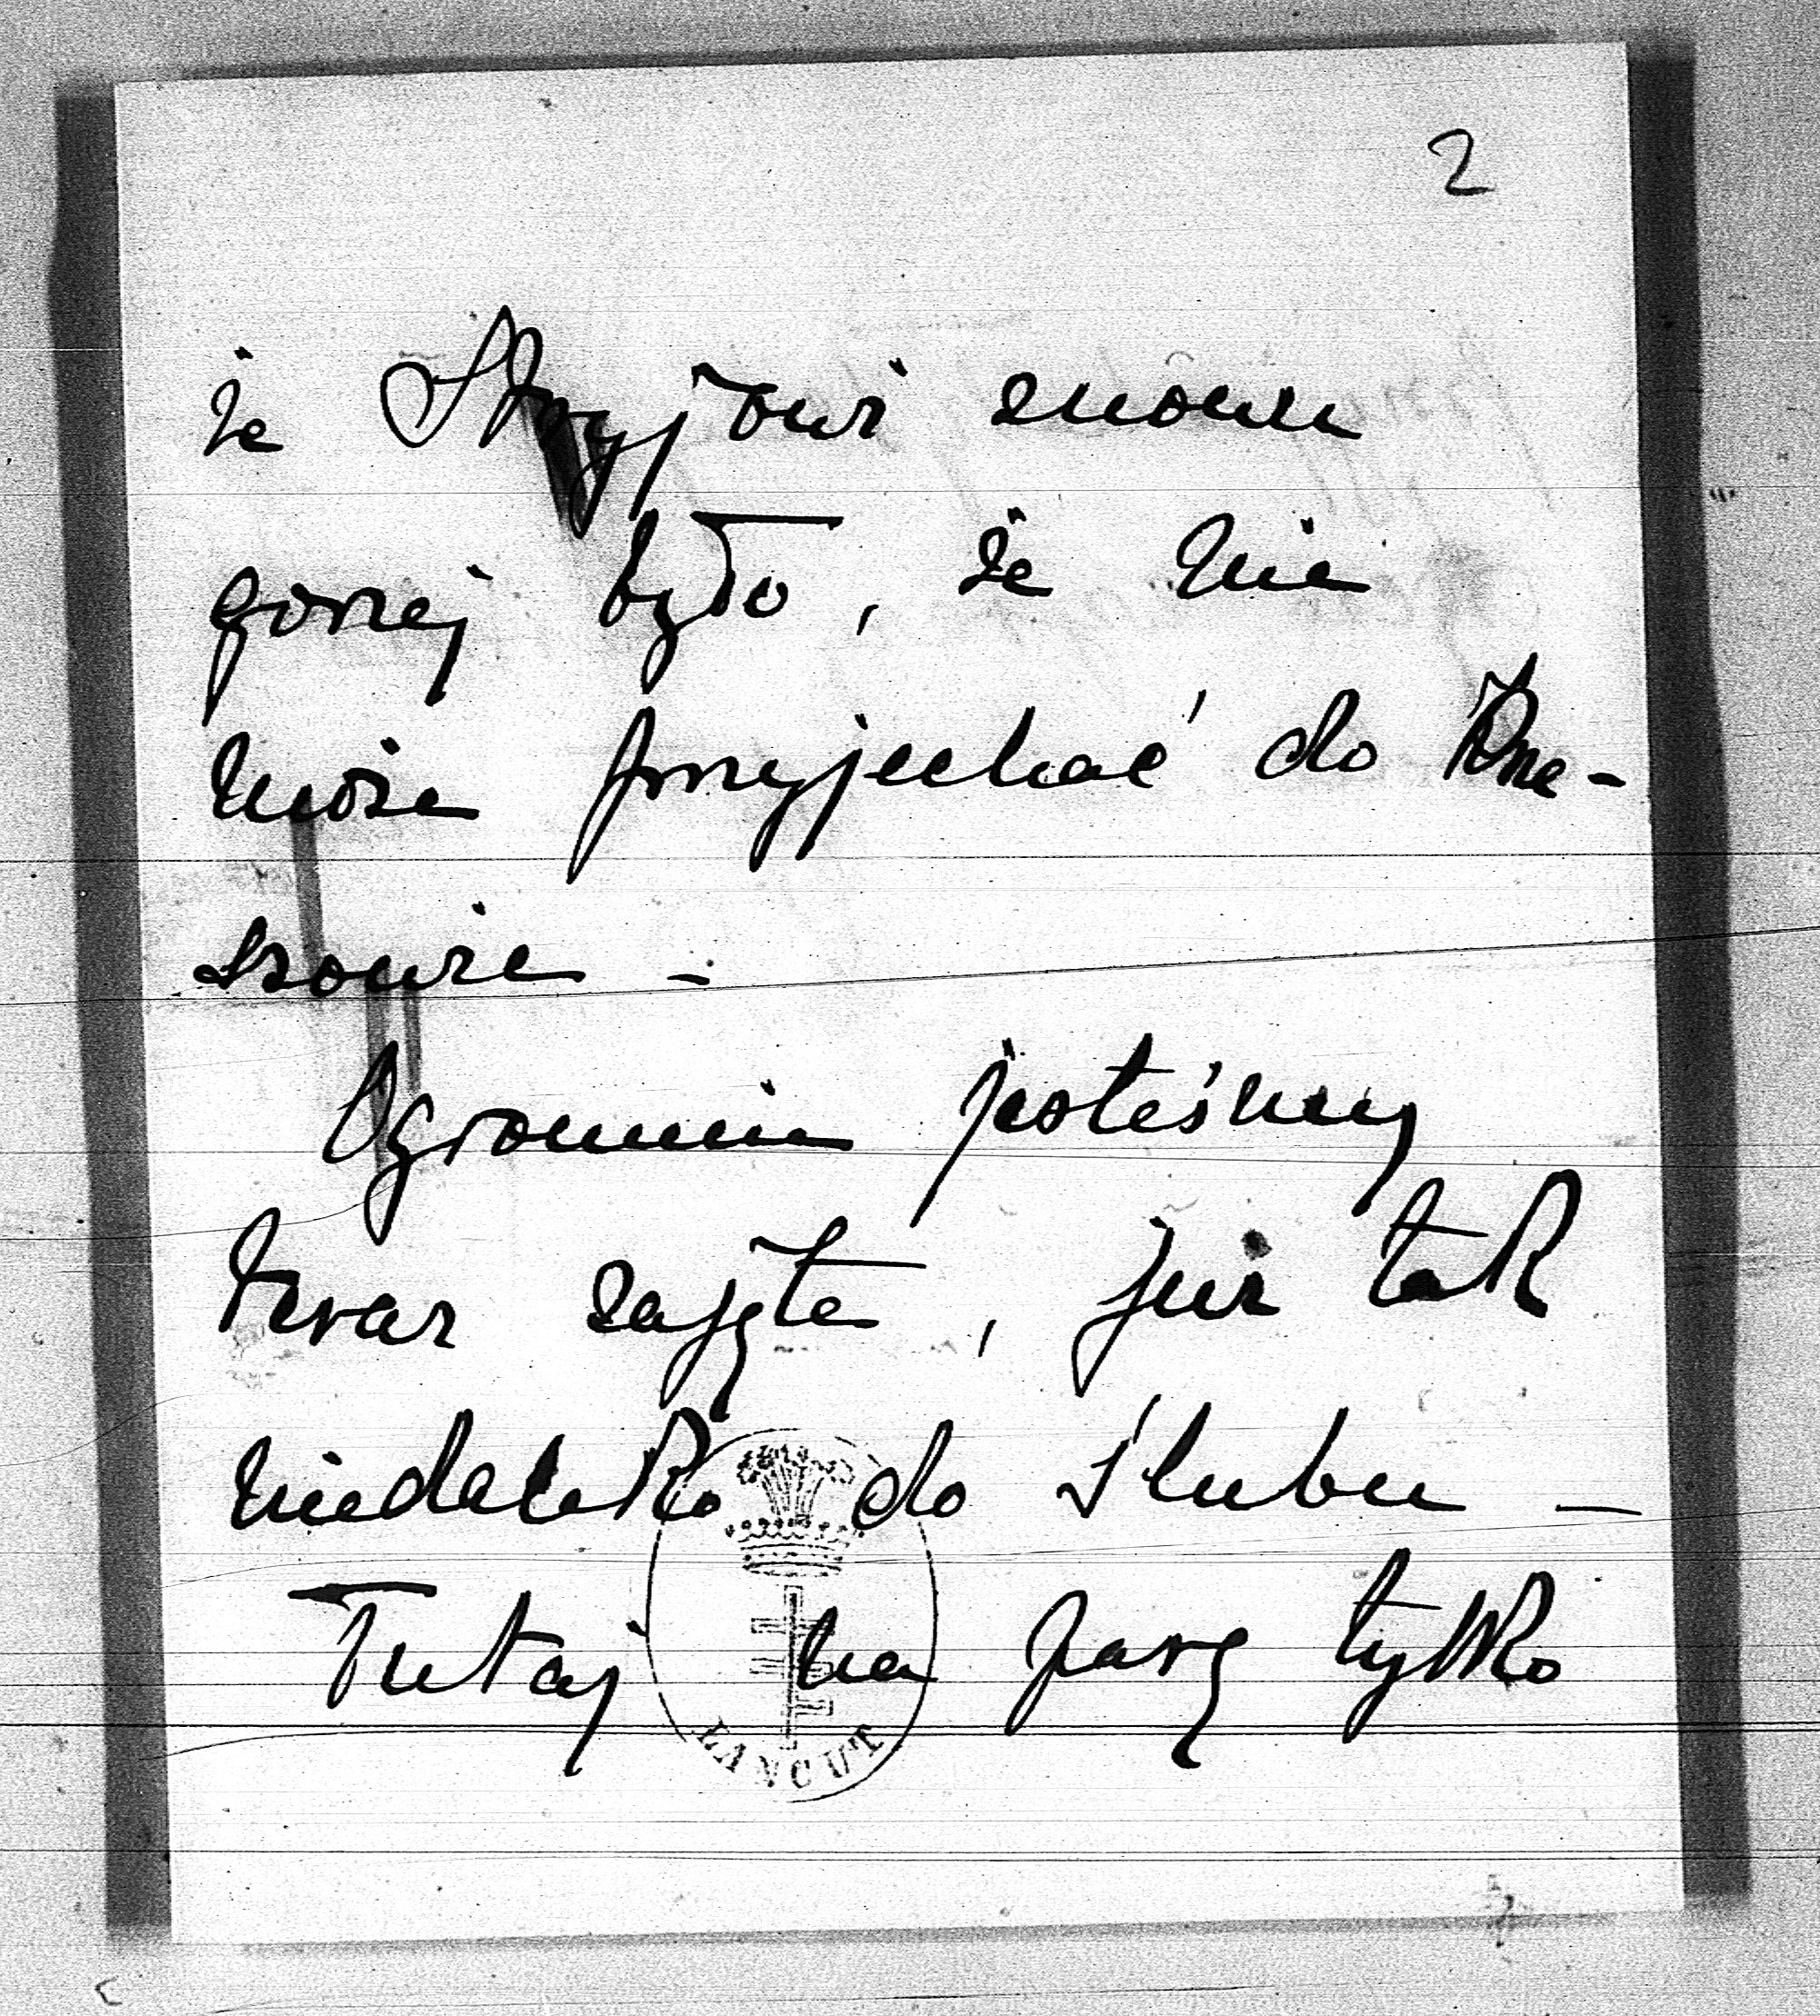 2
że Stryjowi znowu
gorzej było, że nie
może przyjechać do Krze-
szowic -
Ogromnie jesteśmy
teraz zajęte, już tak
niedaleko do ślubu —
Tutaj na parę tylko
ŁAŃCUT